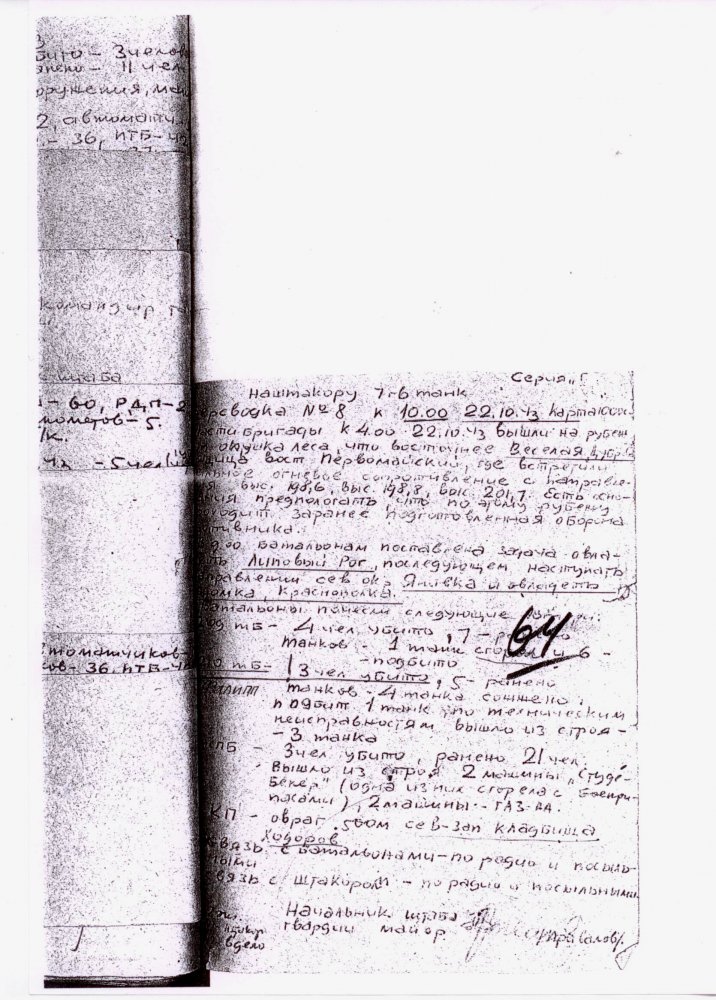 3
убито - 3 челов
ранено - 11 чел
оружения, ма
2, автоматчи
- 36, ПТБ-
Командир
штаба
- 60, РДП-2
пометов - 5.
/к.
- 5 чел
томатчиков-
ов- 36. ПТБ-
Серия "Г"
Наштакору 7 гв танк
сводка №8 к 10.00 22.10.43 карта 100000
сти бригады к 4.00 22.10.43 вышли на рубеж
опушка леса, что восточнее Веселая Дубр
ица вост Первомайский, где встретили
ное огневое сопротивление с направле-
выс. 198,6, выс. 198,8, выс. 201,7. Есть осно-
ния предпологать, что по этому рубежу
ходит заранее подготовленная оборона
тивника.
00 батальонам поставлена задача овла-
ть Липовый Рог, последующем наступать
правлении сев ок. Янивка и овладеть
Краснополка.
батальоны понесли следующие
тб - 4 чел убито, 7 - ранено
танков - 1 танк сгорел и 6 -
- подбито
64
тб - 13 чел убито, 5 - ранено
танков - 4 танка сожжено,
подбит 1 танк, по техническим
неисправностям вышло из строя -
- 3 танка
ПБ - 3 чел убито, ранено 21 чел.
Вышло из строя 2 машины "Студе-
бекер" (одна из них сгорела с боепри-
пасами), 2 машины - ГАЗ-АА.
КП - овраг 500м сев-зап кладбища
Ходоров
связь с батальонами - по радио и посыль-
ными
связь с штакором - по радио и посыльными.
Начальник штаба
гвардии майор
в дело